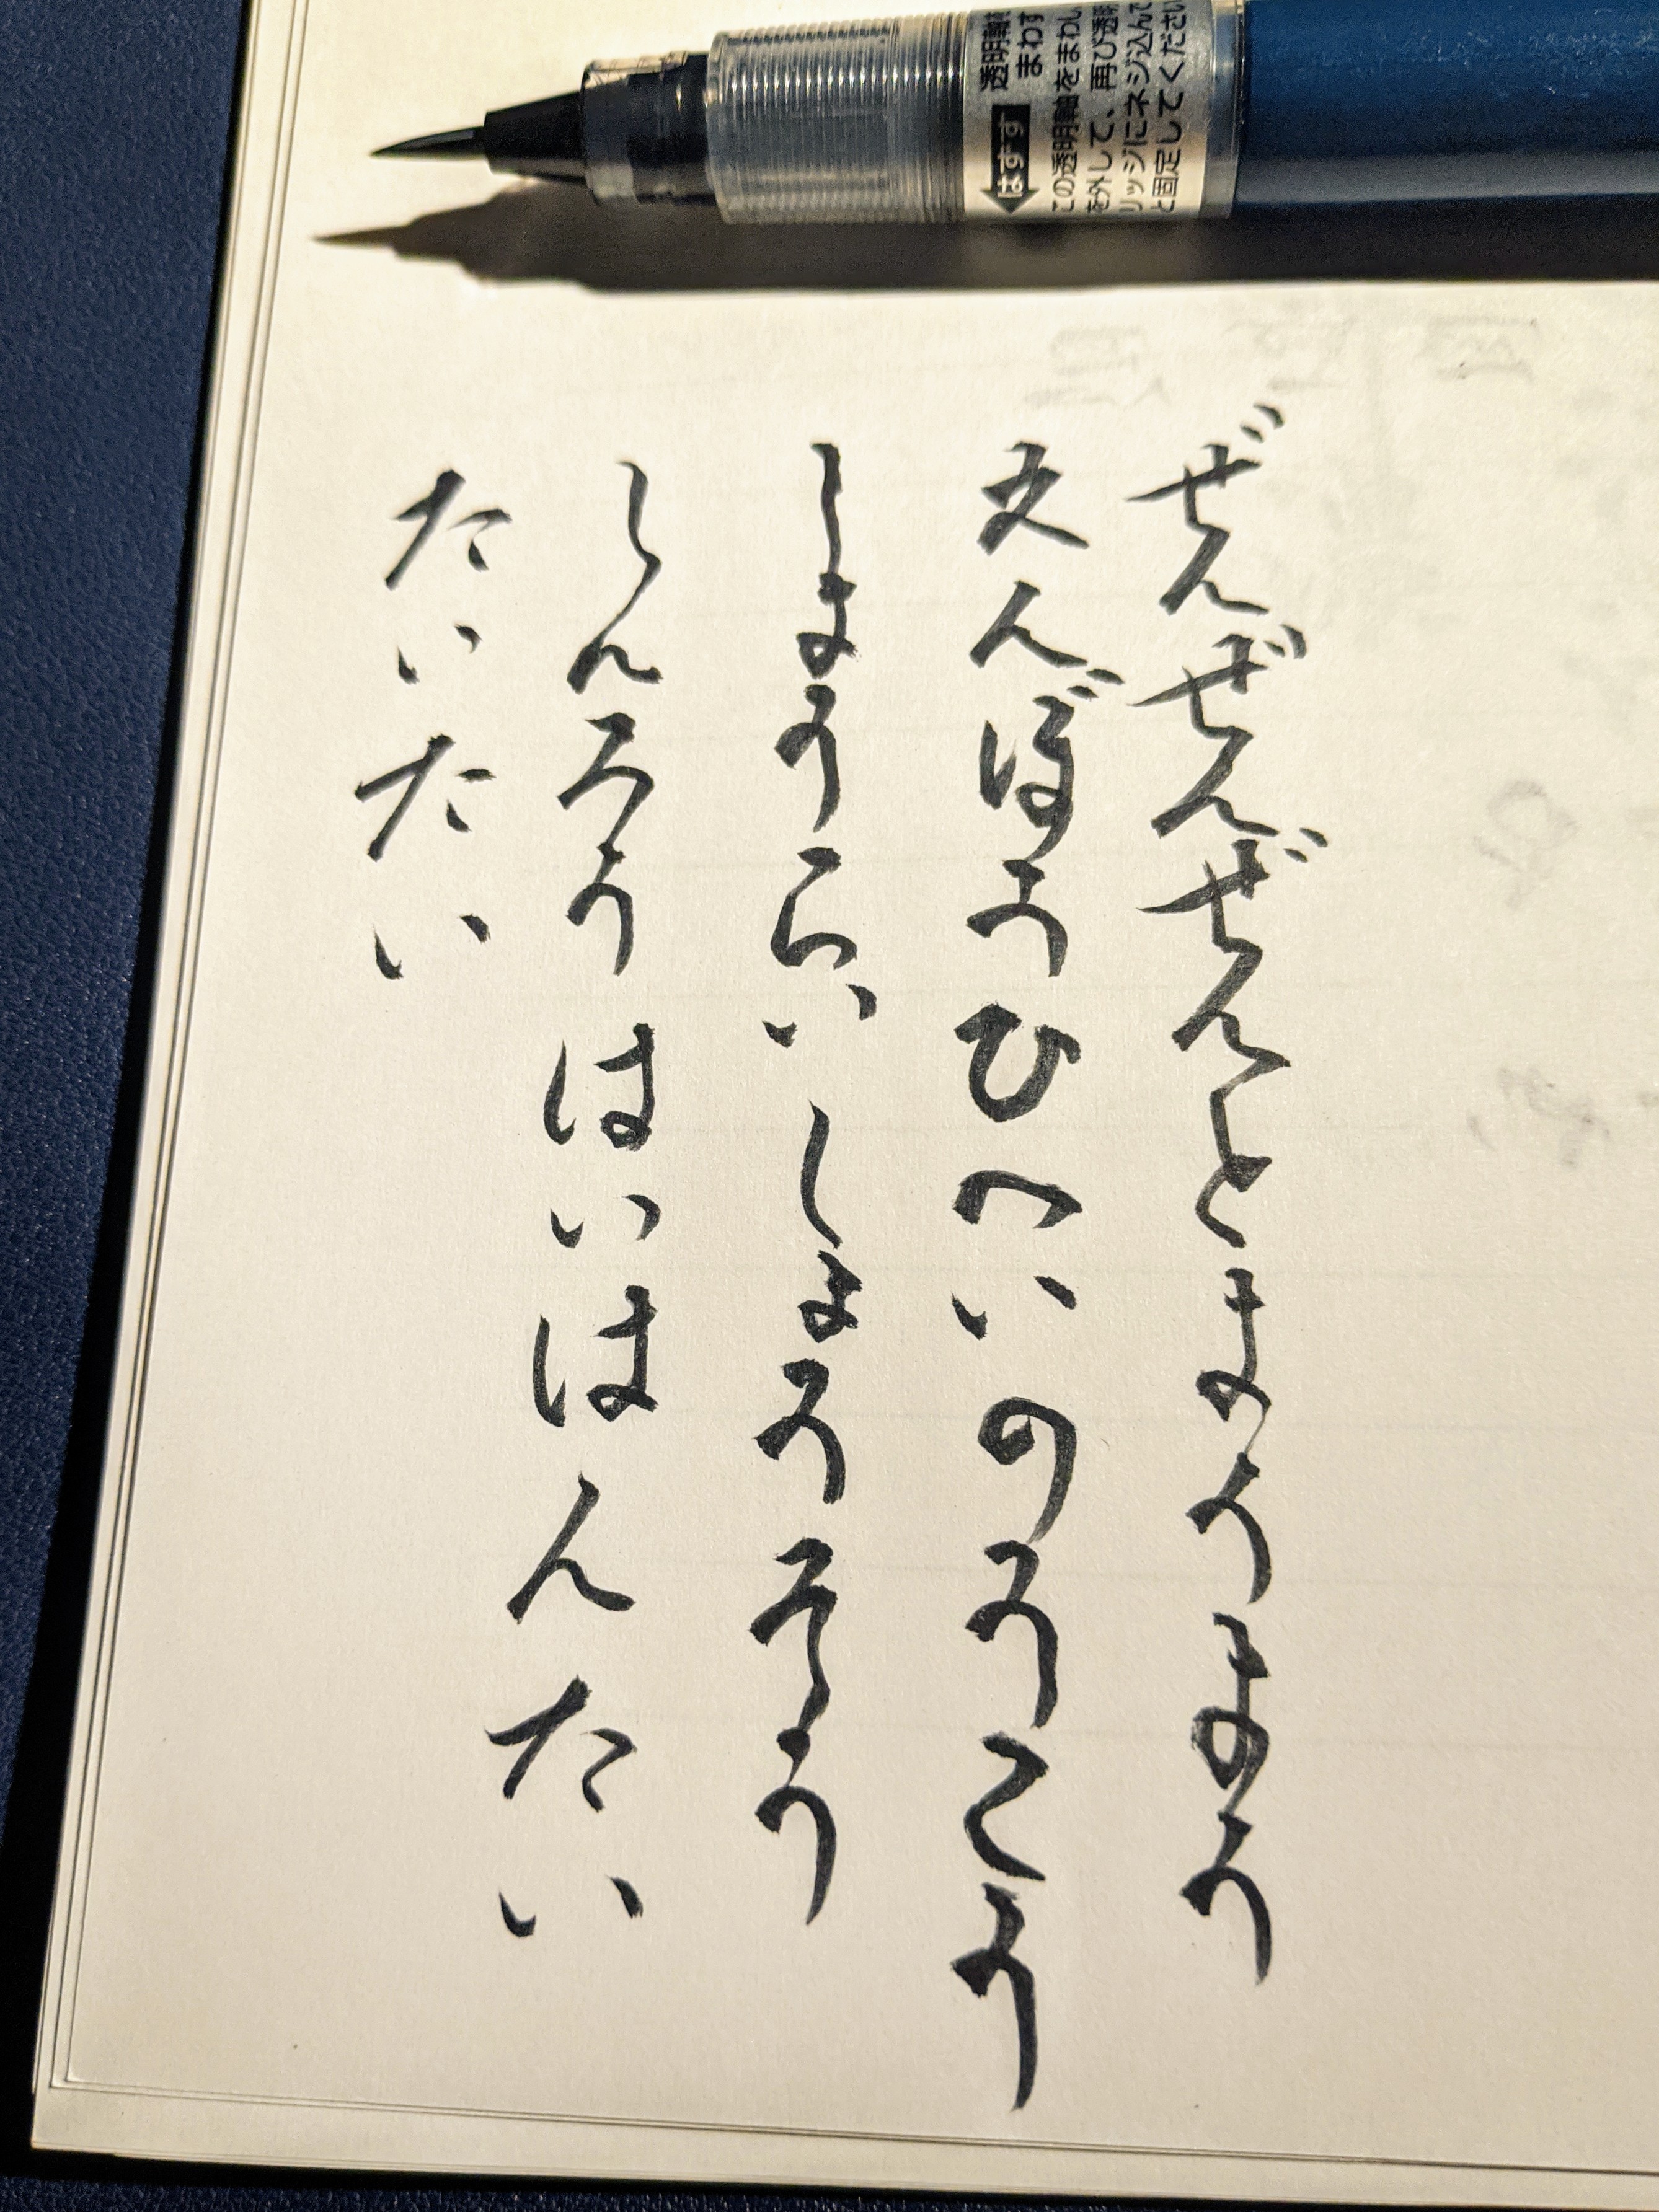 透明軸を
まわす
はずす
この透明軸をまわし
を外して、再び透明
リッジにネジ込んで
と固定してください
ぜんぜんぜんとようよう
えんぼうひへいのうこう
しょうらいしょうそう
しんろうはいはんたい
たいたい